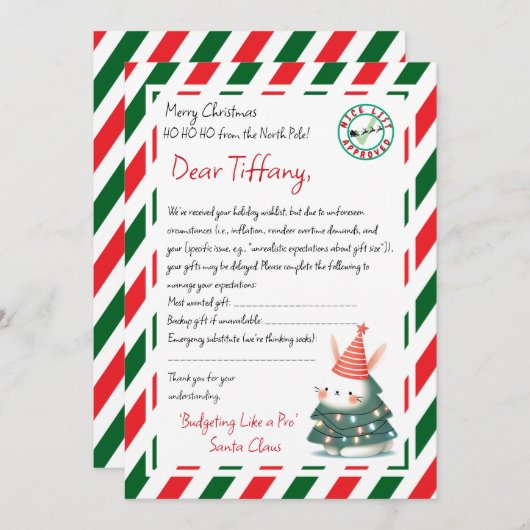 Merry Christmas
HO HO HO from the North Pole!
NICE LIST
APPROVED
Dear Tiffany,
We've received your holiday wishlist, but due to unforeseen
circumstances (i.e., inflation, reindeer overtime demands, and
your [specific issue, e.g., "unrealistic expectations about gift size"]),
your gifts may be delayed. Please complete the following to
manage your expectations:
Most wanted gift: ____________________
Backup gift if unavailable: ____________________
Emergency substitute (we're thinking socks):
____________________
Thank you for your
understanding,
'Budgeting Like a Pro'
Santa Claus